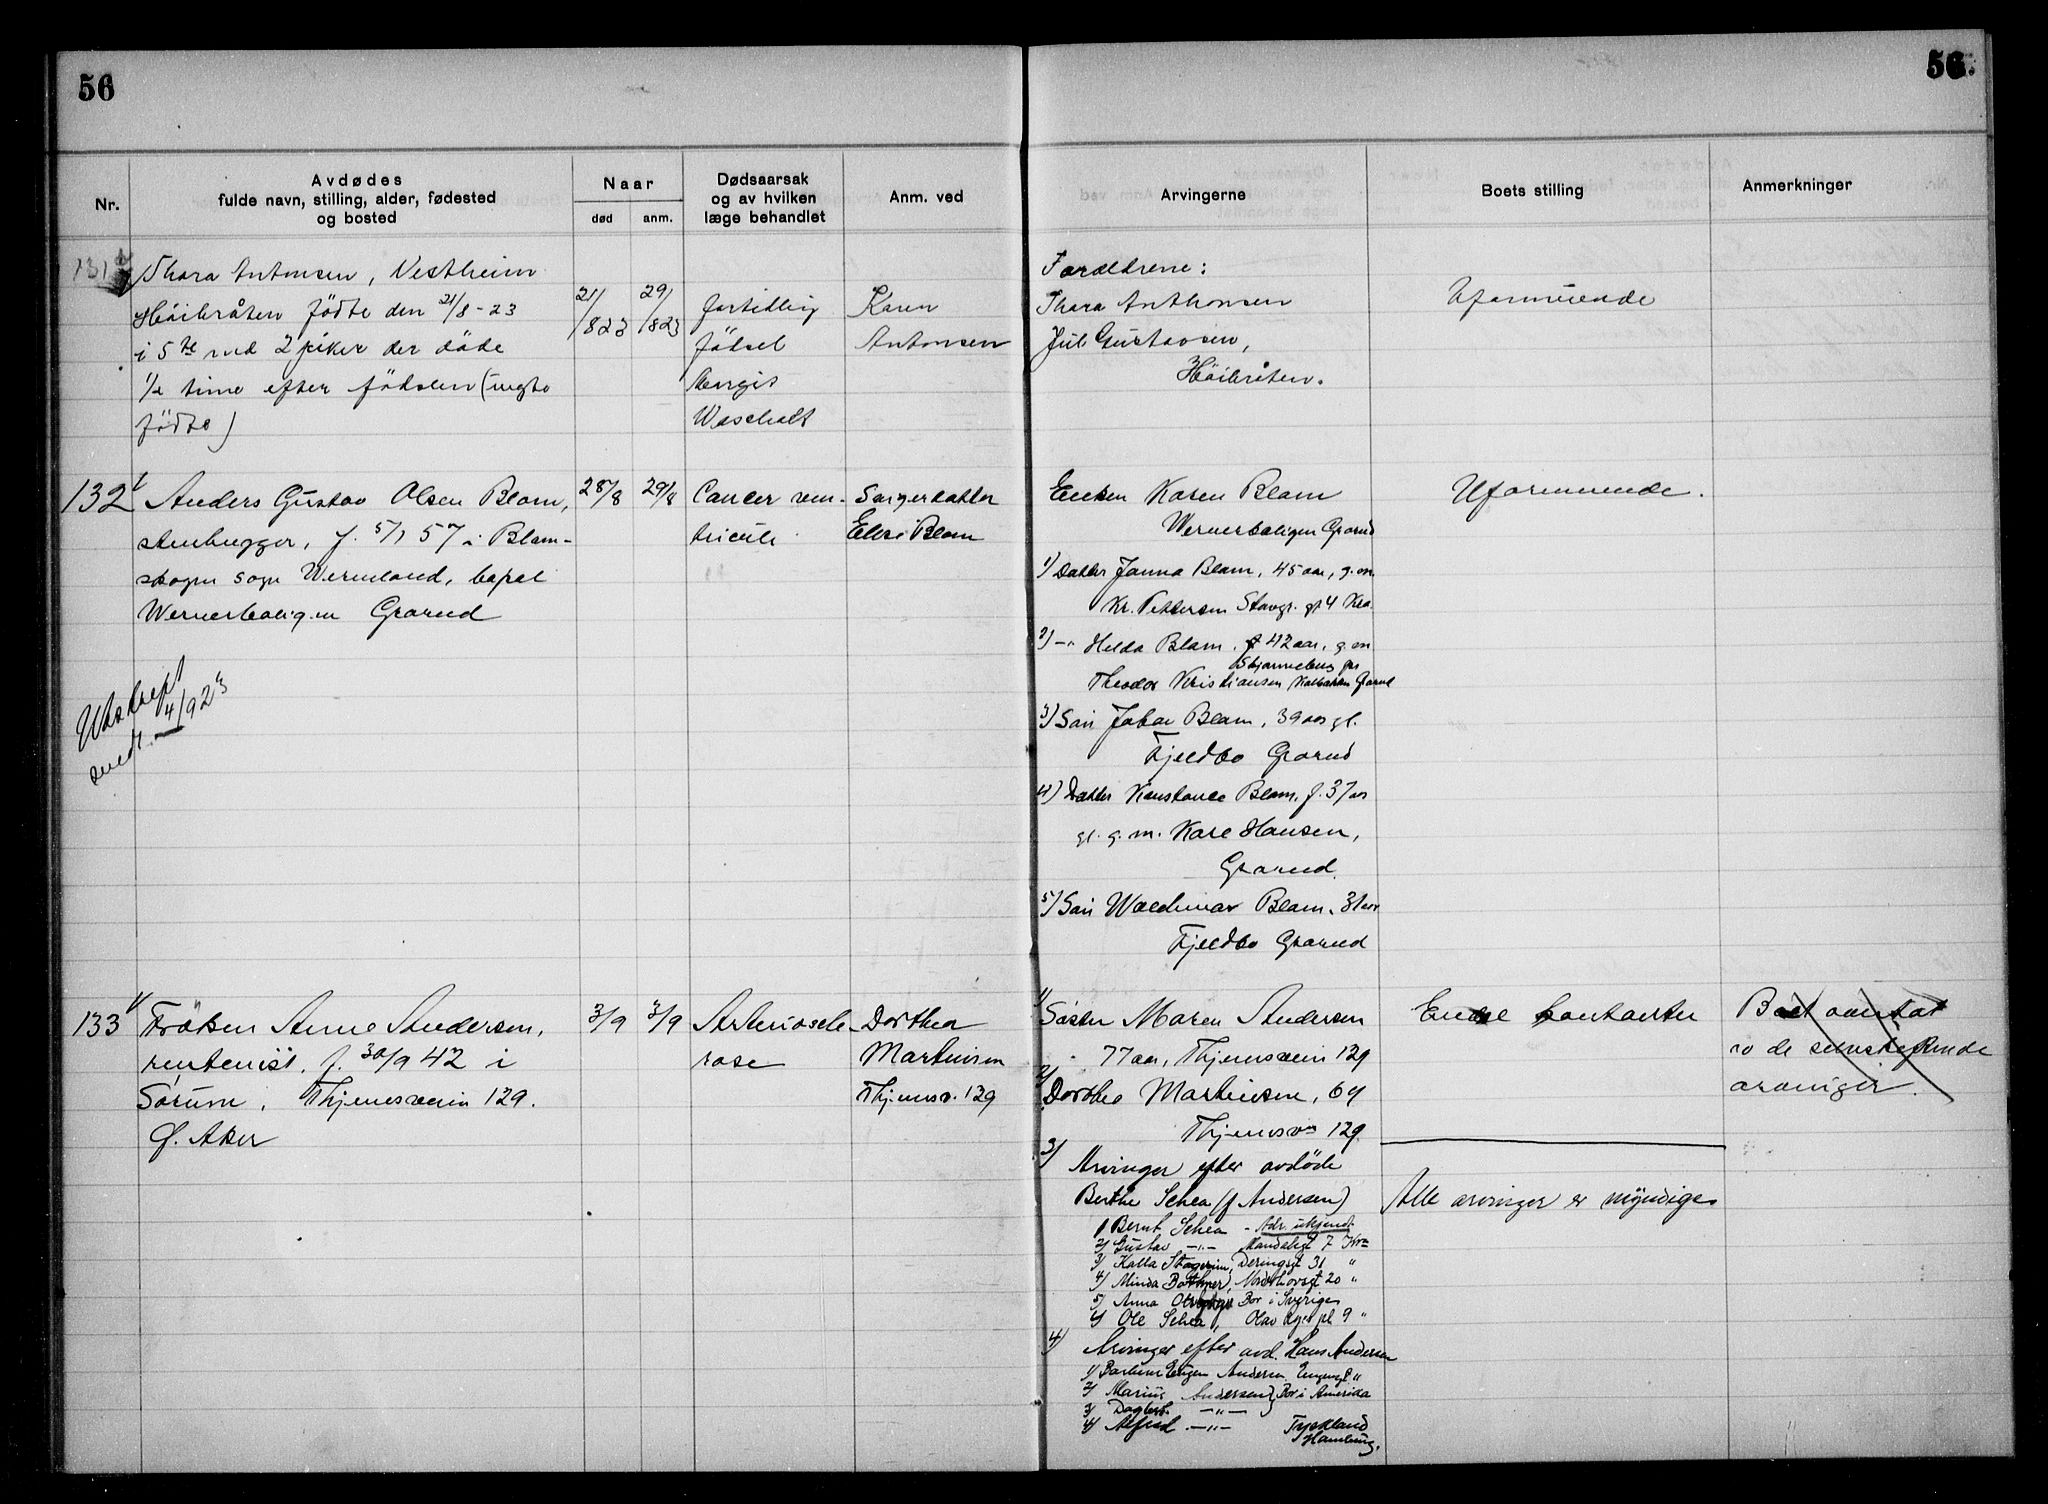 56
56.
Nr.
Avdødes
fulde navn, stilling, alder, fødested
og bosted
Naar
død
anm.
Dødsaarsak
og av hvilken
læge behandlet
Anm. ved
Arvingerne
Boets stilling
Anmerkninger
131
Thora Antonsen, Vestheim
Höibråten födte den 21/8-23
i 5te md 2 piker der döde
1/2 time efter födselen
födte)
21/8 23
29/8 23
fortidlig
födsel
Margit
Karen
Antonsen
Forældrene:
Thora Anthonsen
Jul Gustavsen,
Höibråten.
Uformuende
132
Anders Gustav Olsen Blom,
stenhugger, f. 5/1 57 i Blom-
skogen sogn Wermland, bopæl
Wernerboligen Grorud
28/8
29/8
Cancer ven-
triculi
Sönnerdatter
Elise Blom
Enken Karen Blom
Wernerboligen Grorud
1) Datter Janna Blom, 45 aar, g. m.
Kr. Pettersen Stavgr. gt 4 Kra.
2) -"- Hilda Blom, f 42 aar, g. m
Theodor Kristiansen Kalbakken Grorud
3) Sön Johan Blom, 39 aar gl.
Fjeldbo Grorud
4) Datter Konstance Blom, f. 37 aar
gl. g. m. Kare Hansen,
Grorud.
5) Sön Waldemar Blom, 31 aar
Fjeldbo Grorud
Uformuende.
Utskrift
sendt 4/9 23
133
Fröken Anne Andersen,
rentenist, f. 30/9 42 i
Sörum, Thjemsveien 129.
Ø. Aker
3/9
3/9
Arterioscle-
rose
Dorthea
Martinsen
Thjemsv. 129
1) Söster Maren Andersen
77 aar, Thjemsveien 129
2) Dorthea Martinsen, 69
Thjemsvn 129
3) Arvinger efter avdöde
Berthe Schea (f Andersen)
1) Bernt Schea - Adr. ukjendt
2) Gustav -"- Mandalsgt 7 Kra
3) Kalla Deringsgt 31 "
4) Minda Nordhovsgt 20 "
5) Anna Bor i Sverige
6) Ole Schea, Olav Ryes pl 9 "
4) Arvinger efter avd. Hans Andersen
1) Eugen Andersen
2) Marius Andersen } Bor i Amerika
3) Dagbert. -"-
4) Alfred -"- Tyskland
Hamburg.
Endel kontanter
Alle arvinger er myndige
Boet overtat
av de selvskiftende
arvinger.